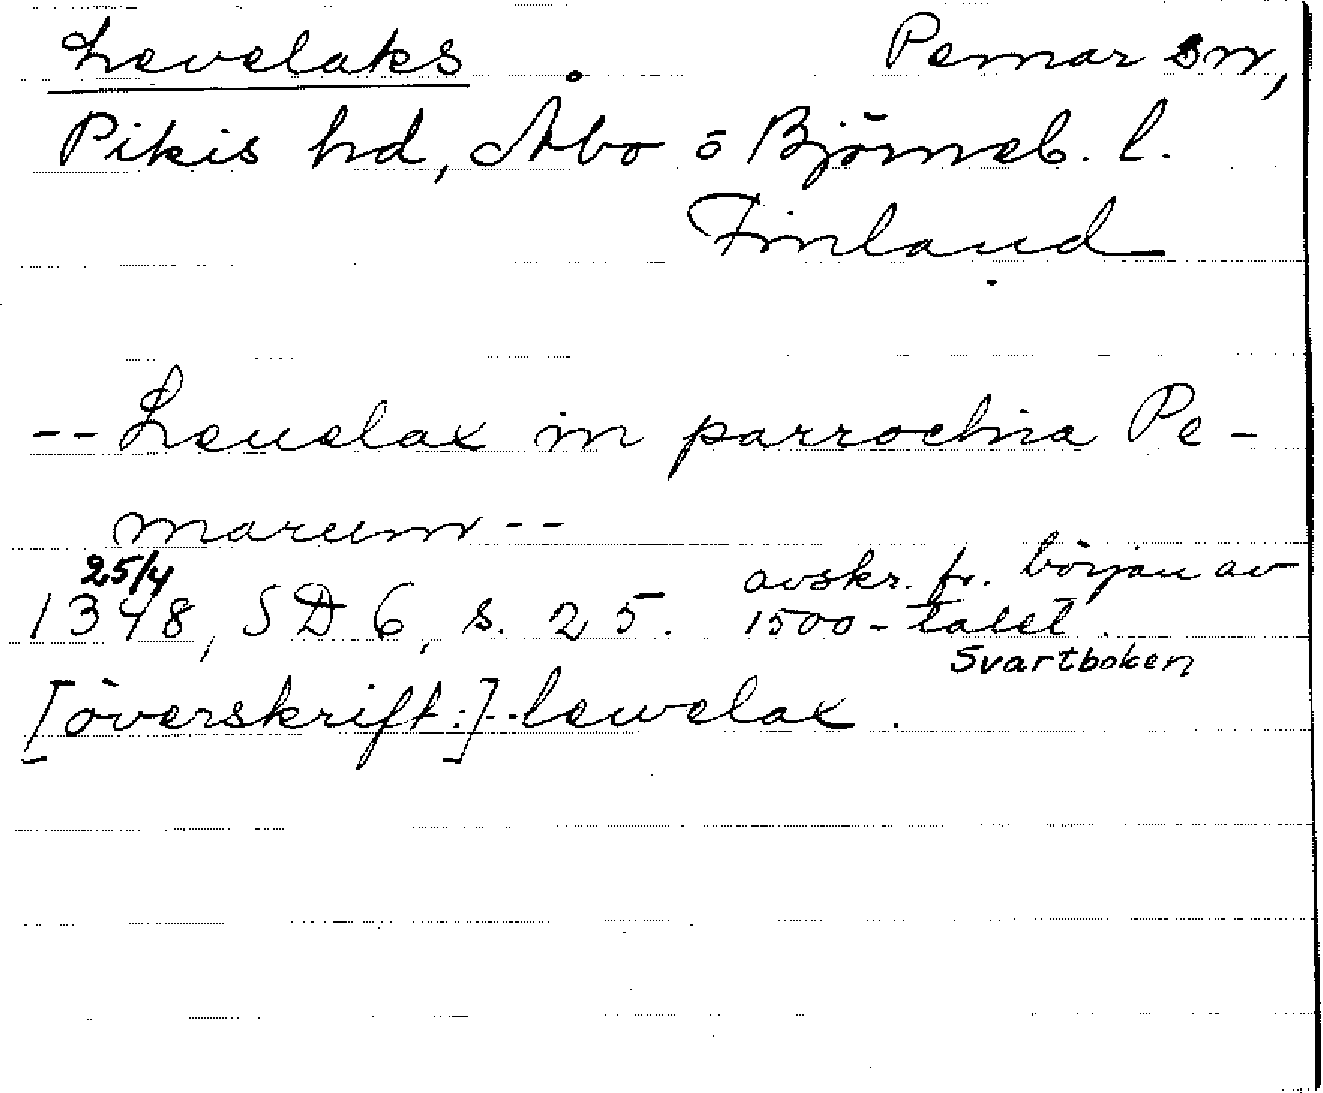 Levelaks . Pemar sn,
Pikis hd, Åbo o Björneb. l.
Finland
-- Leuelax in parrochia Pe-
marum --
25/4
1348, SD 6, s. 25. avskr. fr. början av
1500-talet.
Svartboken
[överskrift:]--lewelax.